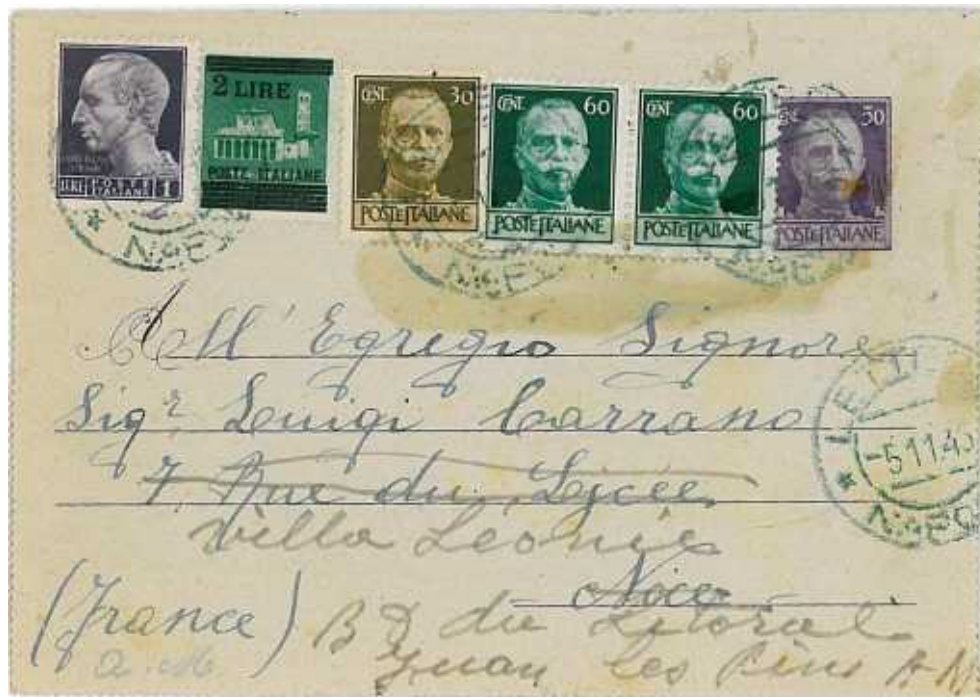 2 LIRE
POSTE ITALIANE
LIRE POSTE ITALIANE 1
CENT 30
POSTE ITALIANE
CENT 60
POSTE ITALIANE
CENT 60
POSTE ITALIANE
50
POSTE ITALIANE
All' Egregio Signore
Sigr Luigi Carrano
7 Rue du Lycée
Villa Léonie
Nice
(France) Bd du Litoral
a. M Juan Les Pins A M
-5 11 4